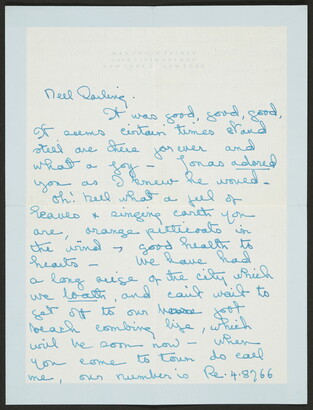 Nell Darling.
It was good, good, good,
It seems certain times stand
still are there forever and
what a joy – Jonas adored
you as I knew he would –
Oh! Nell what a feel of
leaves & singing earth you
are, orange petticoats in
the wind → good health to
hearts – We have had
a long seige of the city which
we loath, and can't wait to
get off to our
beach combing life, which
will be soon now – when
you come to town do call
me, our number is Re. 4.8766